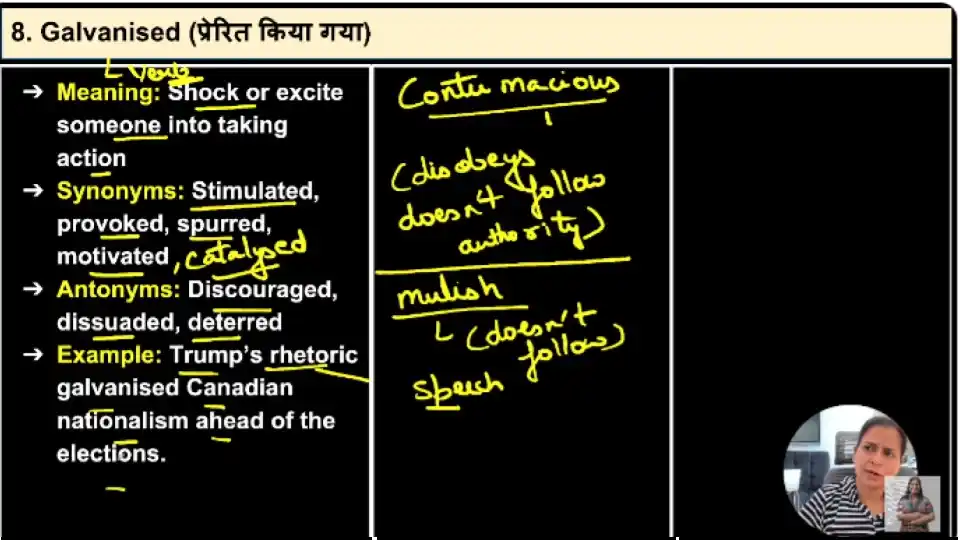 8. Galvanised (प्रेरित किया गया)
└ verb
➔ Meaning: Shock or excite
someone into taking
action
➔ Synonyms: Stimulated,
provoked, spurred,
motivated, catalysed
➔ Antonyms: Discouraged,
dissuaded, deterred
➔ Example: Trump's rhetoric
galvanised Canadian
nationalism ahead of the
elections.
Contumacious
(disobeys
doesn't follow
authority)
mulish
└ (doesn't
follow)
speech